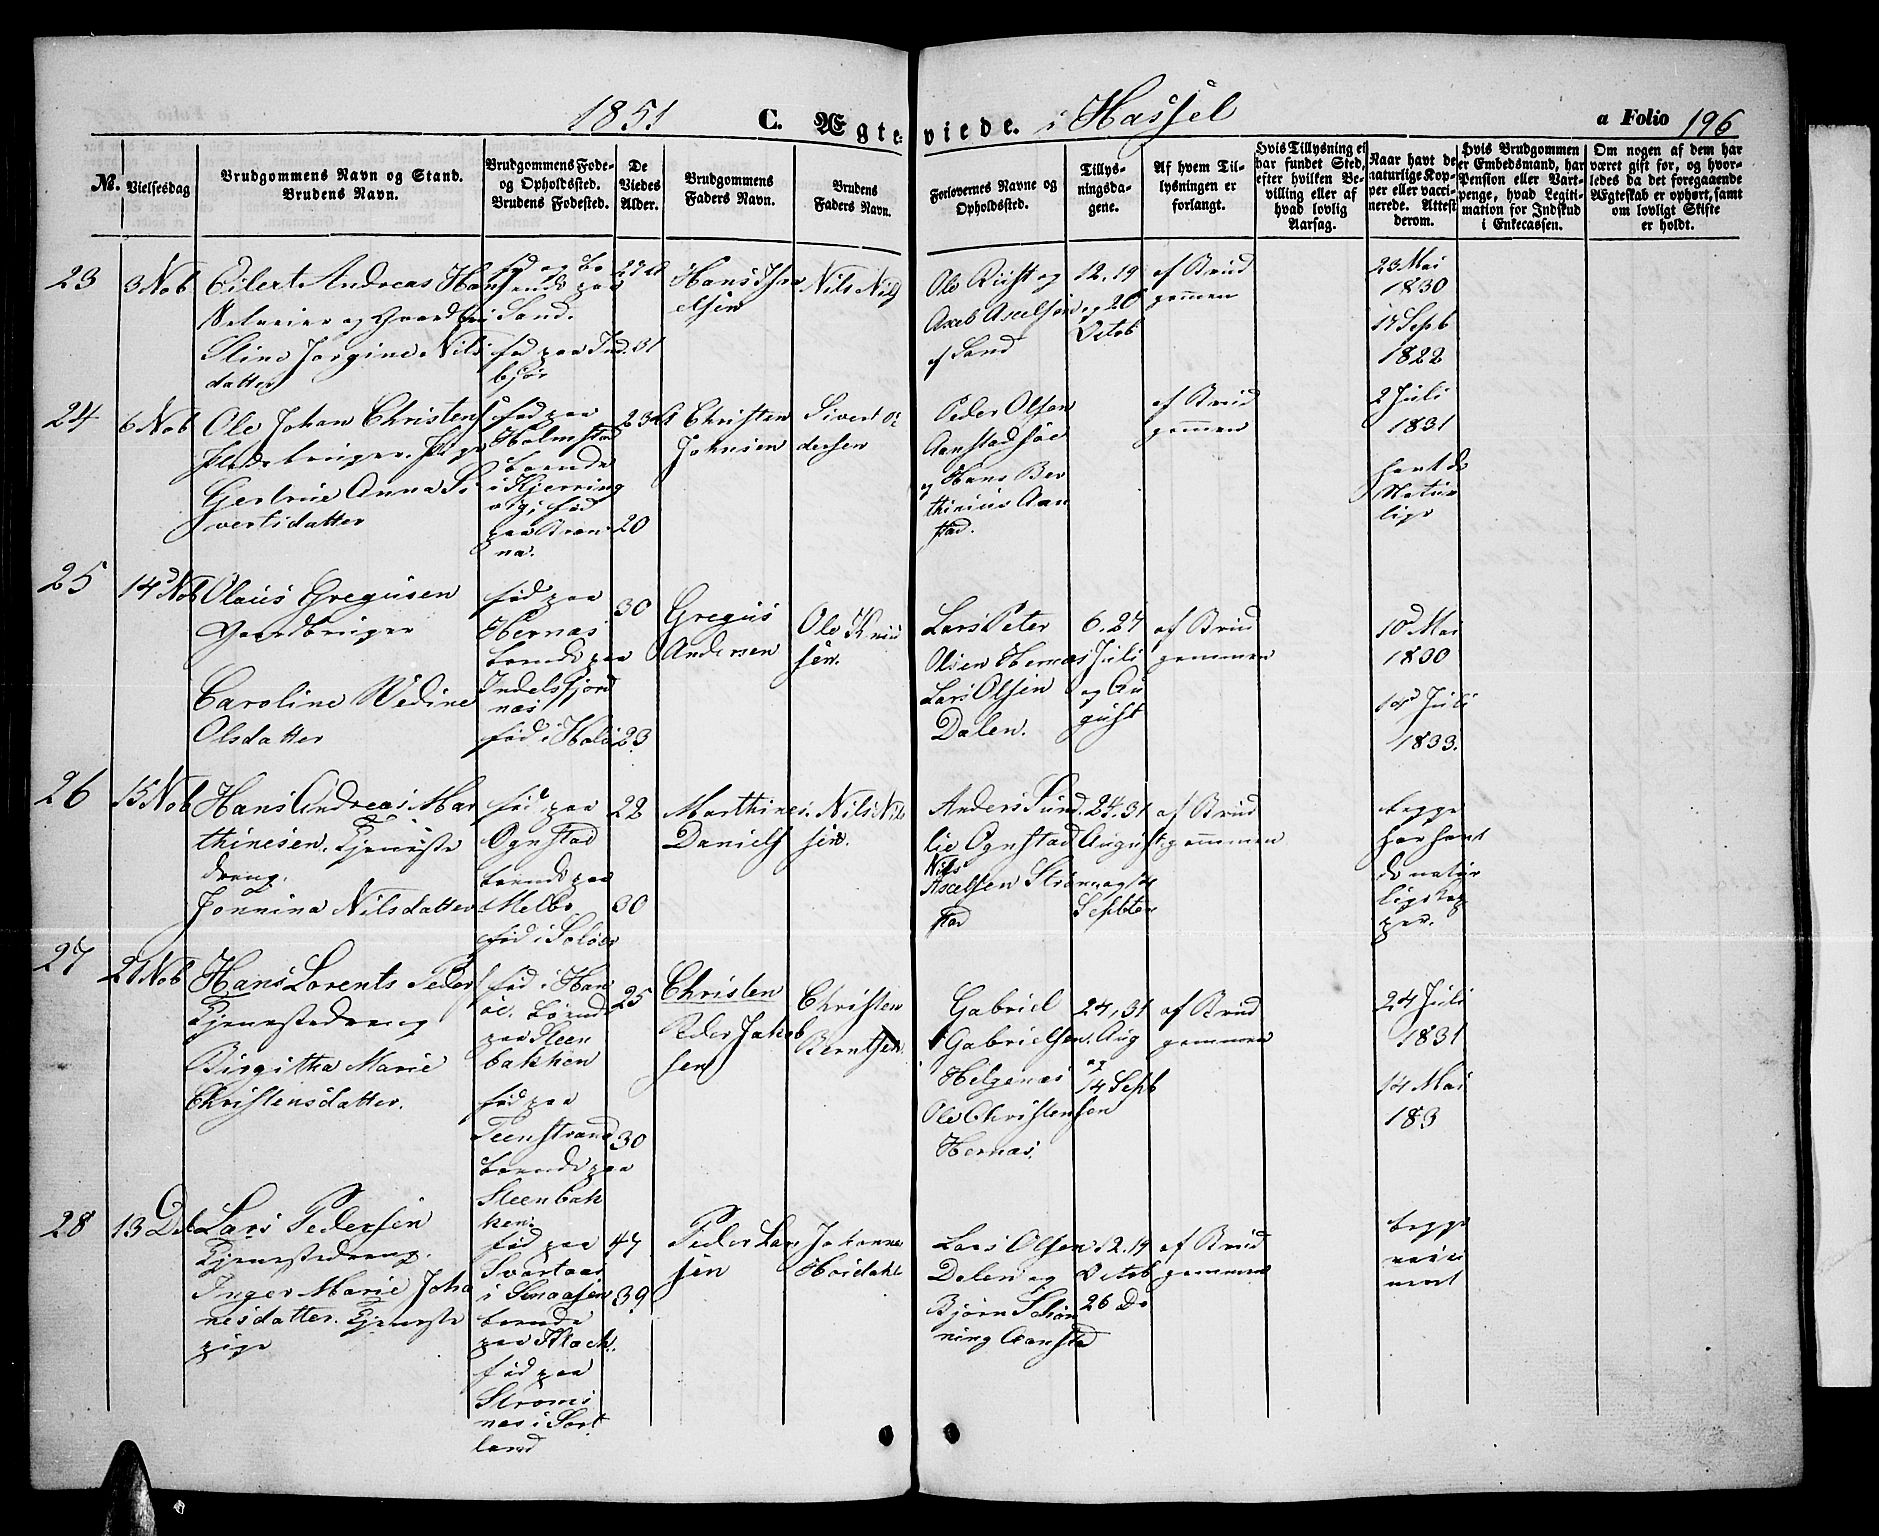 1851 C. Ægteviede. i Hassel a Folio 196
№.
Vielsesdag
Brudgommens Navn og Stand.
Brudens Navn.
Brudgommens Føde-
og Opholdssted.
Brudens Fødested.
De
Viedes
Alder.
Brudgommens
Faders Navn.
Brudens
Faders Navn.
Forlovernes Navne og
Opholdssted.
Tillys-
ningsda-
gene.
Af hvem Til-
lysningen er
forlangt.
Hvis Tillysning ei
har fundet Sted,
efter hvilken Be-
villing eller af
hvad lovlig
Aarsag.
Naar havt de
naturlige Kop-
per eller vacci-
nerede. Attest
derom.
Hvis Brudgommen
er Embedsmand, har
Pension eller Vart-
penge, hvad Legiti-
mation for Indskud
i Enkecassen.
Om nogen af dem har
været gift før, og hvor-
ledes da det foregaaende
Ægteskab er ophørt, samt
om lovligt Skifte
er holdt.
23
3 Nob
Eilert Andreas Hans
Selveier og Gaardbru
Stine Jorgine Nils
datter
fød og bo
ende paa
Sand.
fød paa Ind
bjør
31
Hans Isra
elsen
Nils Nils
Ole Riist og
Axel Axelsen
af Sand
12, 19
og 26
Octob
af Brud
gommen
23 Mai
1830
17 Sept
1822
24
6 Nob
Ole Johan Christens
Pladsbruger.
Gertrue Anna Si
vertsdatter
fød paa
Holmstad
boende
i Kjerring
vig, fød
paa Bræn
na.
20
Christen
Johnsen
Sivert
dersen
Peder Olsen
Aanstadsøe
og Hans Ber
thinius Aan
stad.
af Brud
gommen
2 Juli
1831
havt de
Natur
lige
25
14d Nob
Olaus Gregusen
Gaardbruger
Caroline Wedine
Olsdatter
fød paa
Hernæs
boende paa
Indelsfjord
næs
fød i
30
23
Gregus
Andersen
Ole Knud
sen.
Lars Peter
Olsen Hernæs
Lars Olsen
Dalen.
6. 27
Juli
og Au
gust
af Brud
gommen
10d Mai
1830
Juli
1833.
26
15 Nob
Hans Andreas Mar
thinesen. Tjeneste
dreng.
Jonnina Nilsdatter
fød paa
Ognstad
boende paa
Melbo
fød i
22
30
Marthines
Daniels
Nils Nil
sen.
Anders Sund
lie Ognstad
Nils
Axelsen Strøm
stad
24, 31
August
Septem
af Brud
gommen
begge
har havt
de natur
lige kop
per.
27
21 Nob
Hans Lorents Peder
Tjenestedreng
Birgitha Marie
Christensdatter.
fød i Han
øe. boende
paa Steen
bakken
fød paa
Teenstrand
boende paa
Steenbak
ken.
25
30
Christen
Peder Jakob
sen
Christen
Berntsen.
Gabriel
Gabrielsen.
Helgenæs
Ole Christensen
Hernæs.
24, 31
Aug
og
14 Sept
af Brud
gommen
24 Juli
1831
14 Mai
183
28
13 Dec
Lars Pedersen
Tjenestedreng.
Inger Marie Joha
nesdatter. Tjeneste
pige
fød paa
Svartaas
i Snaasen
boende
paa
fød paa
Strøms
næs i Sort
land
47
39
Peder Lar
sen
Johanne
Lars Olsen
Dalen og
Bjørn Schøn
ning Aansta
12. 19
Octob
26 Do
af Brud
gommen
begge